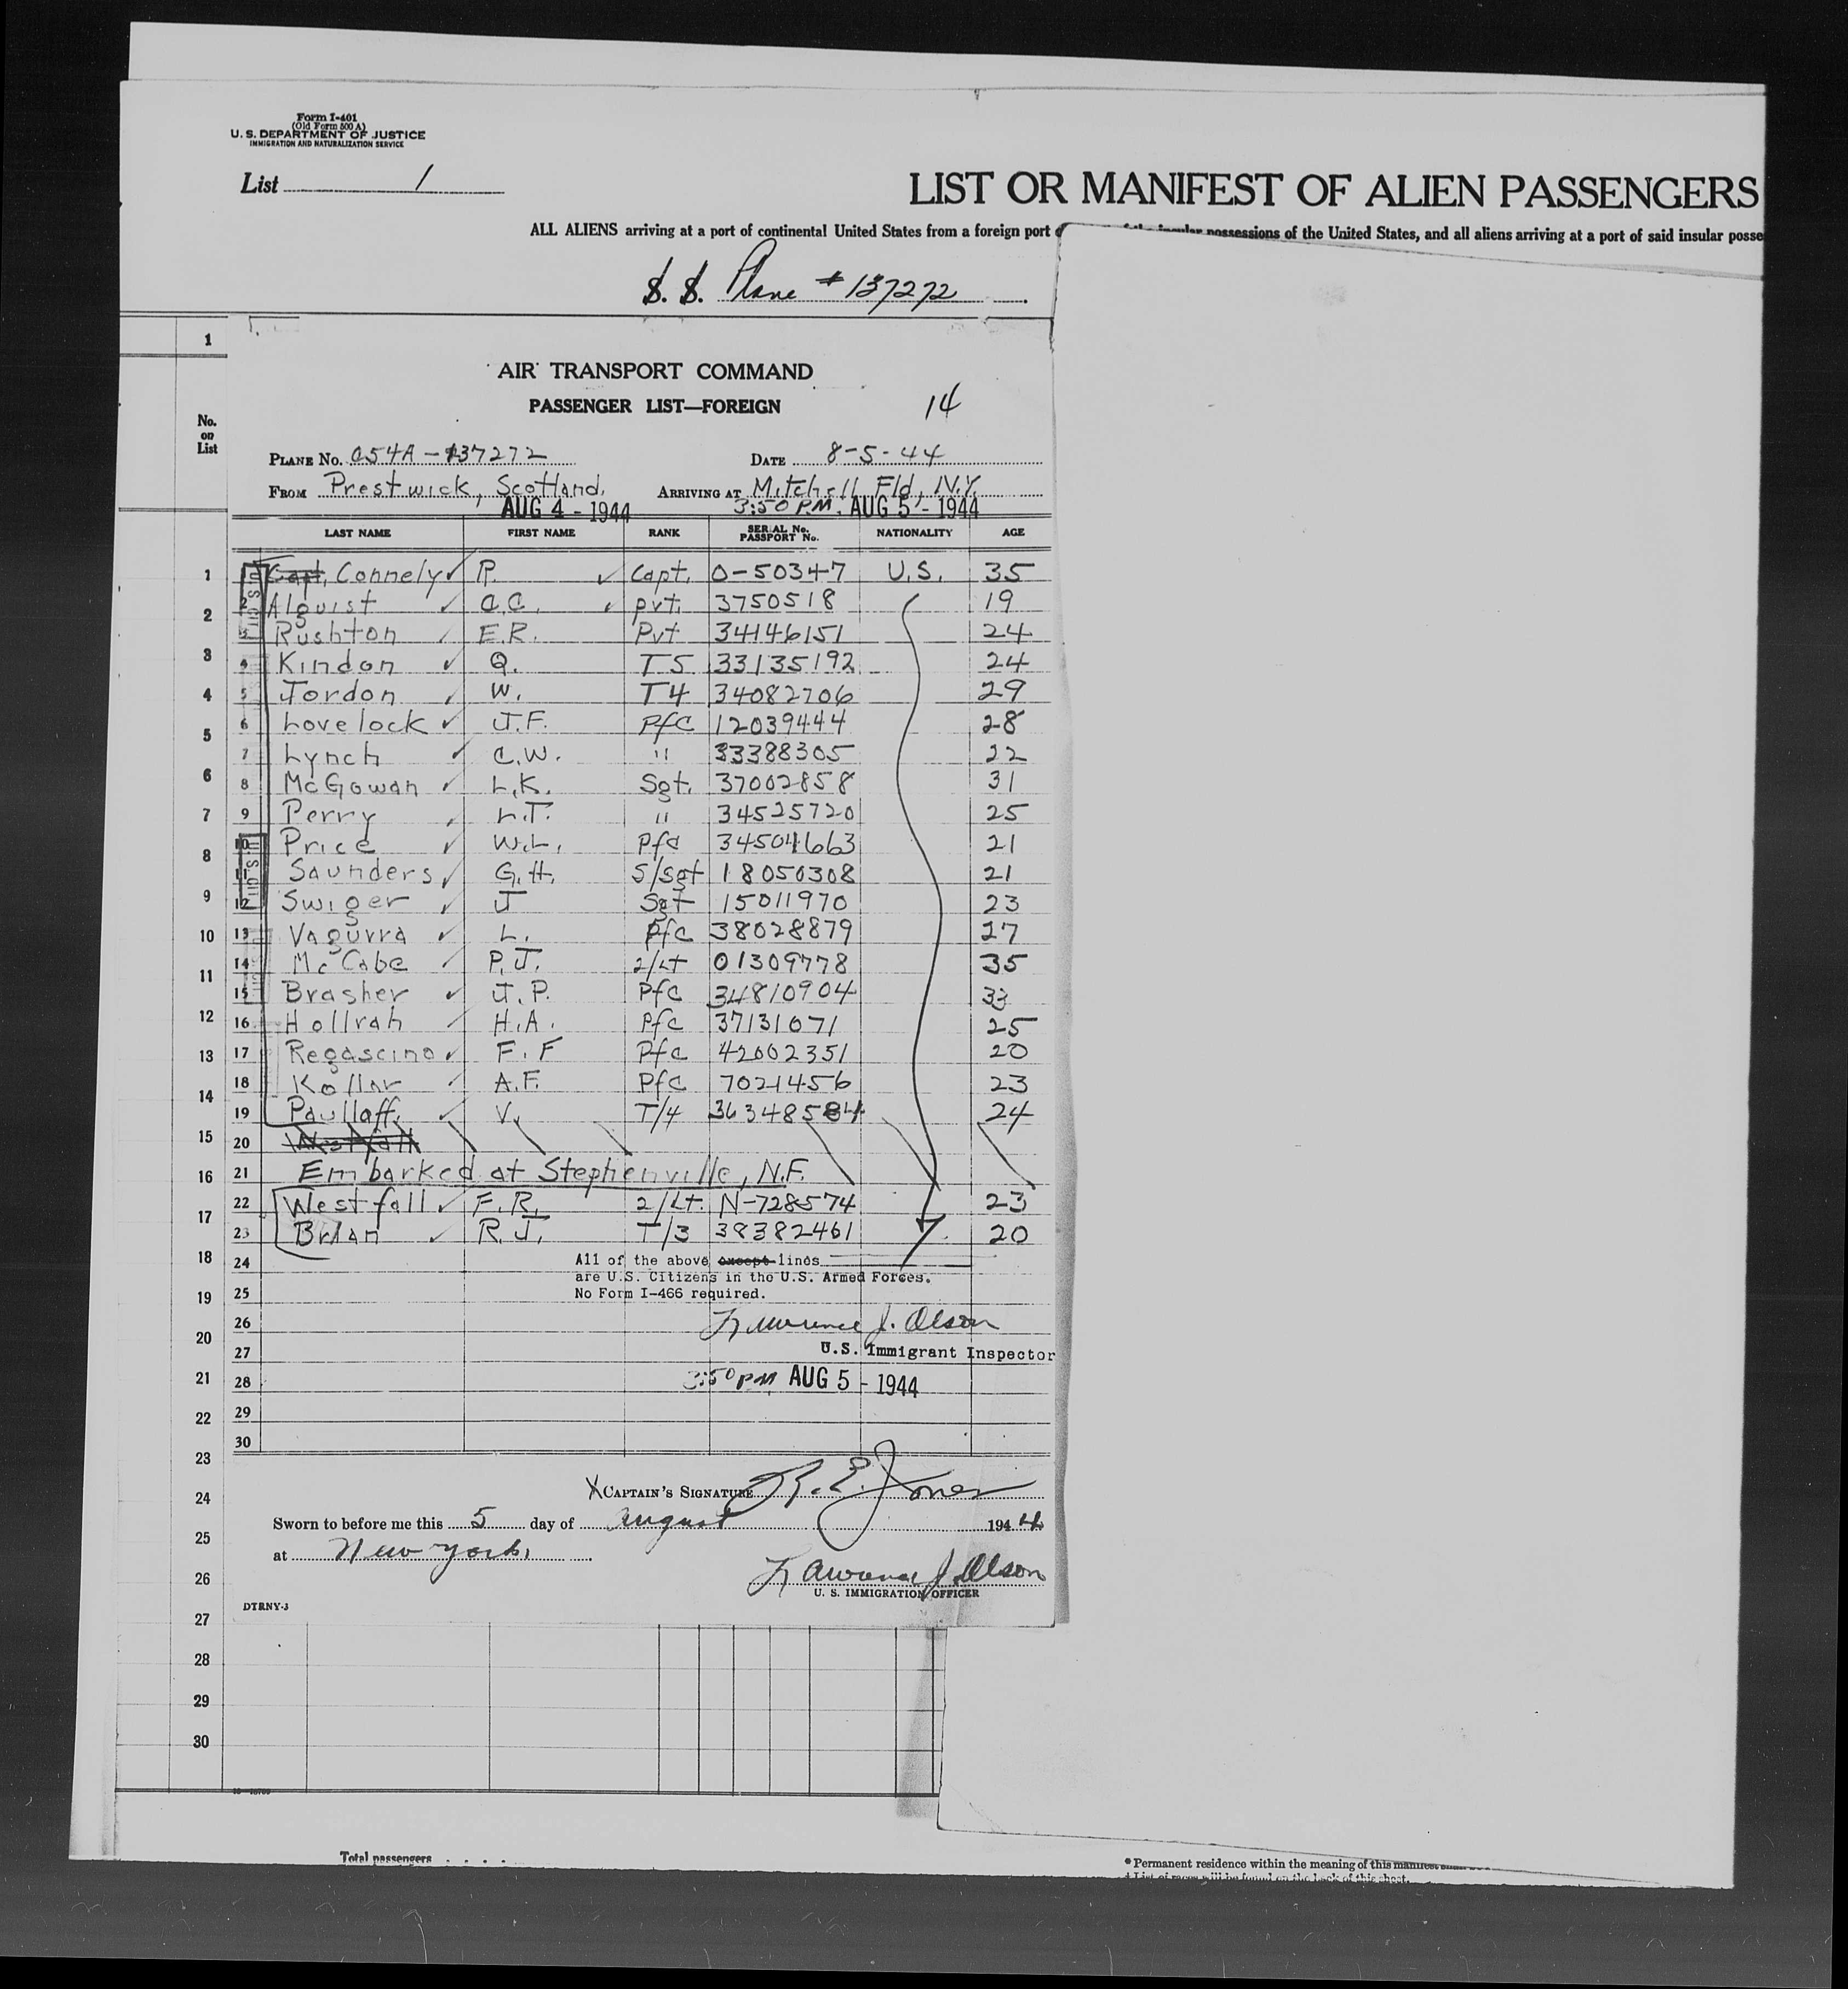 Form I-401
(Old Form 500 A)
U. S. DEPARTMENT OF JUSTICE
IMMIGRATION AND NATURALIZATION SERVICE
List 1
LIST OR MANIFEST OF ALIEN PASSENGERS
ALL ALIENS arriving at a port of continental United States from a foreign port possessions of the United States, and all aliens arriving at a port of said insular posse
S. S. Plane #137272
AIR TRANSPORT COMMAND
PASSENGER LIST—FOREIGN 14
PLANE No. C54A-137272 DATE 8-5-44
FROM Prestwick, Scotland. ARRIVING AT Mitchell Fld, N.Y.
AUG 4 - 1944 3:50 P.M. AUG 5 - 1944
No. on List LAST NAME FIRST NAME RANK SERIAL No. PASSPORT No. NATIONALITY AGE
1 Capt. Connely R. Capt. 0-50347 U.S. 35
2 Alquist C.C. pvt. 3750518 19
3 Rushton E.R. Pvt 34146151 24
4 Kindon Q. T5 33135192 24
5 Jordon W. T4 34082706 29
6 Lovelock J.F. Pfc 12039444 28
7 Lynch C.W. " 33388305 22
8 McGowan L.K. Sgt. 37002858 31
9 Perry L.T. " 34525720 25
10 Price W.L. Pfc 34504663 21
11 Saunders G.H. S/Sgt 18050308 21
12 Swiger J Sgt 15011970 23
13 Vagurra L. Pfc 38028879 27
14 McCabe P.J. 2/Lt 01309778 35
15 Brasher J.P. Pfc 34810904 33
16 Hollrah H.A. Pfc 37131071 25
17 Regascino F.F Pfc 42002351 20
18 Kollar A.F. Pfc 7021456 23
19 Paullaff V. T/4 36348584 24
20 Westfall
21 Embarked at Stephenville, N.F.
22 Westfall F.R. 2/Lt. N-728574 23
23 Brian R.J. T/3 38382461 20
24 All of the above except lines
are U.S. Citizens in the U.S. Armed Forces.
25 No Form I-466 required.
26 Lawrence J. Olson
27 U.S. Immigrant Inspector
28 3:50 PM AUG 5 - 1944
29
30
X CAPTAIN'S SIGNATURE R. E. Jones
Sworn to before me this 5 day of August 1944
at New York.
Lawrence J Olson
U. S. IMMIGRATION OFFICER
DTRNY-3
1
1
2
3
4
5
6
7
8
9
10
11
12
13
14
15
16
17
18
19
20
21
22
23
24
25
26
27
28
29
30
Total passengers
* Permanent residence within the meaning of this